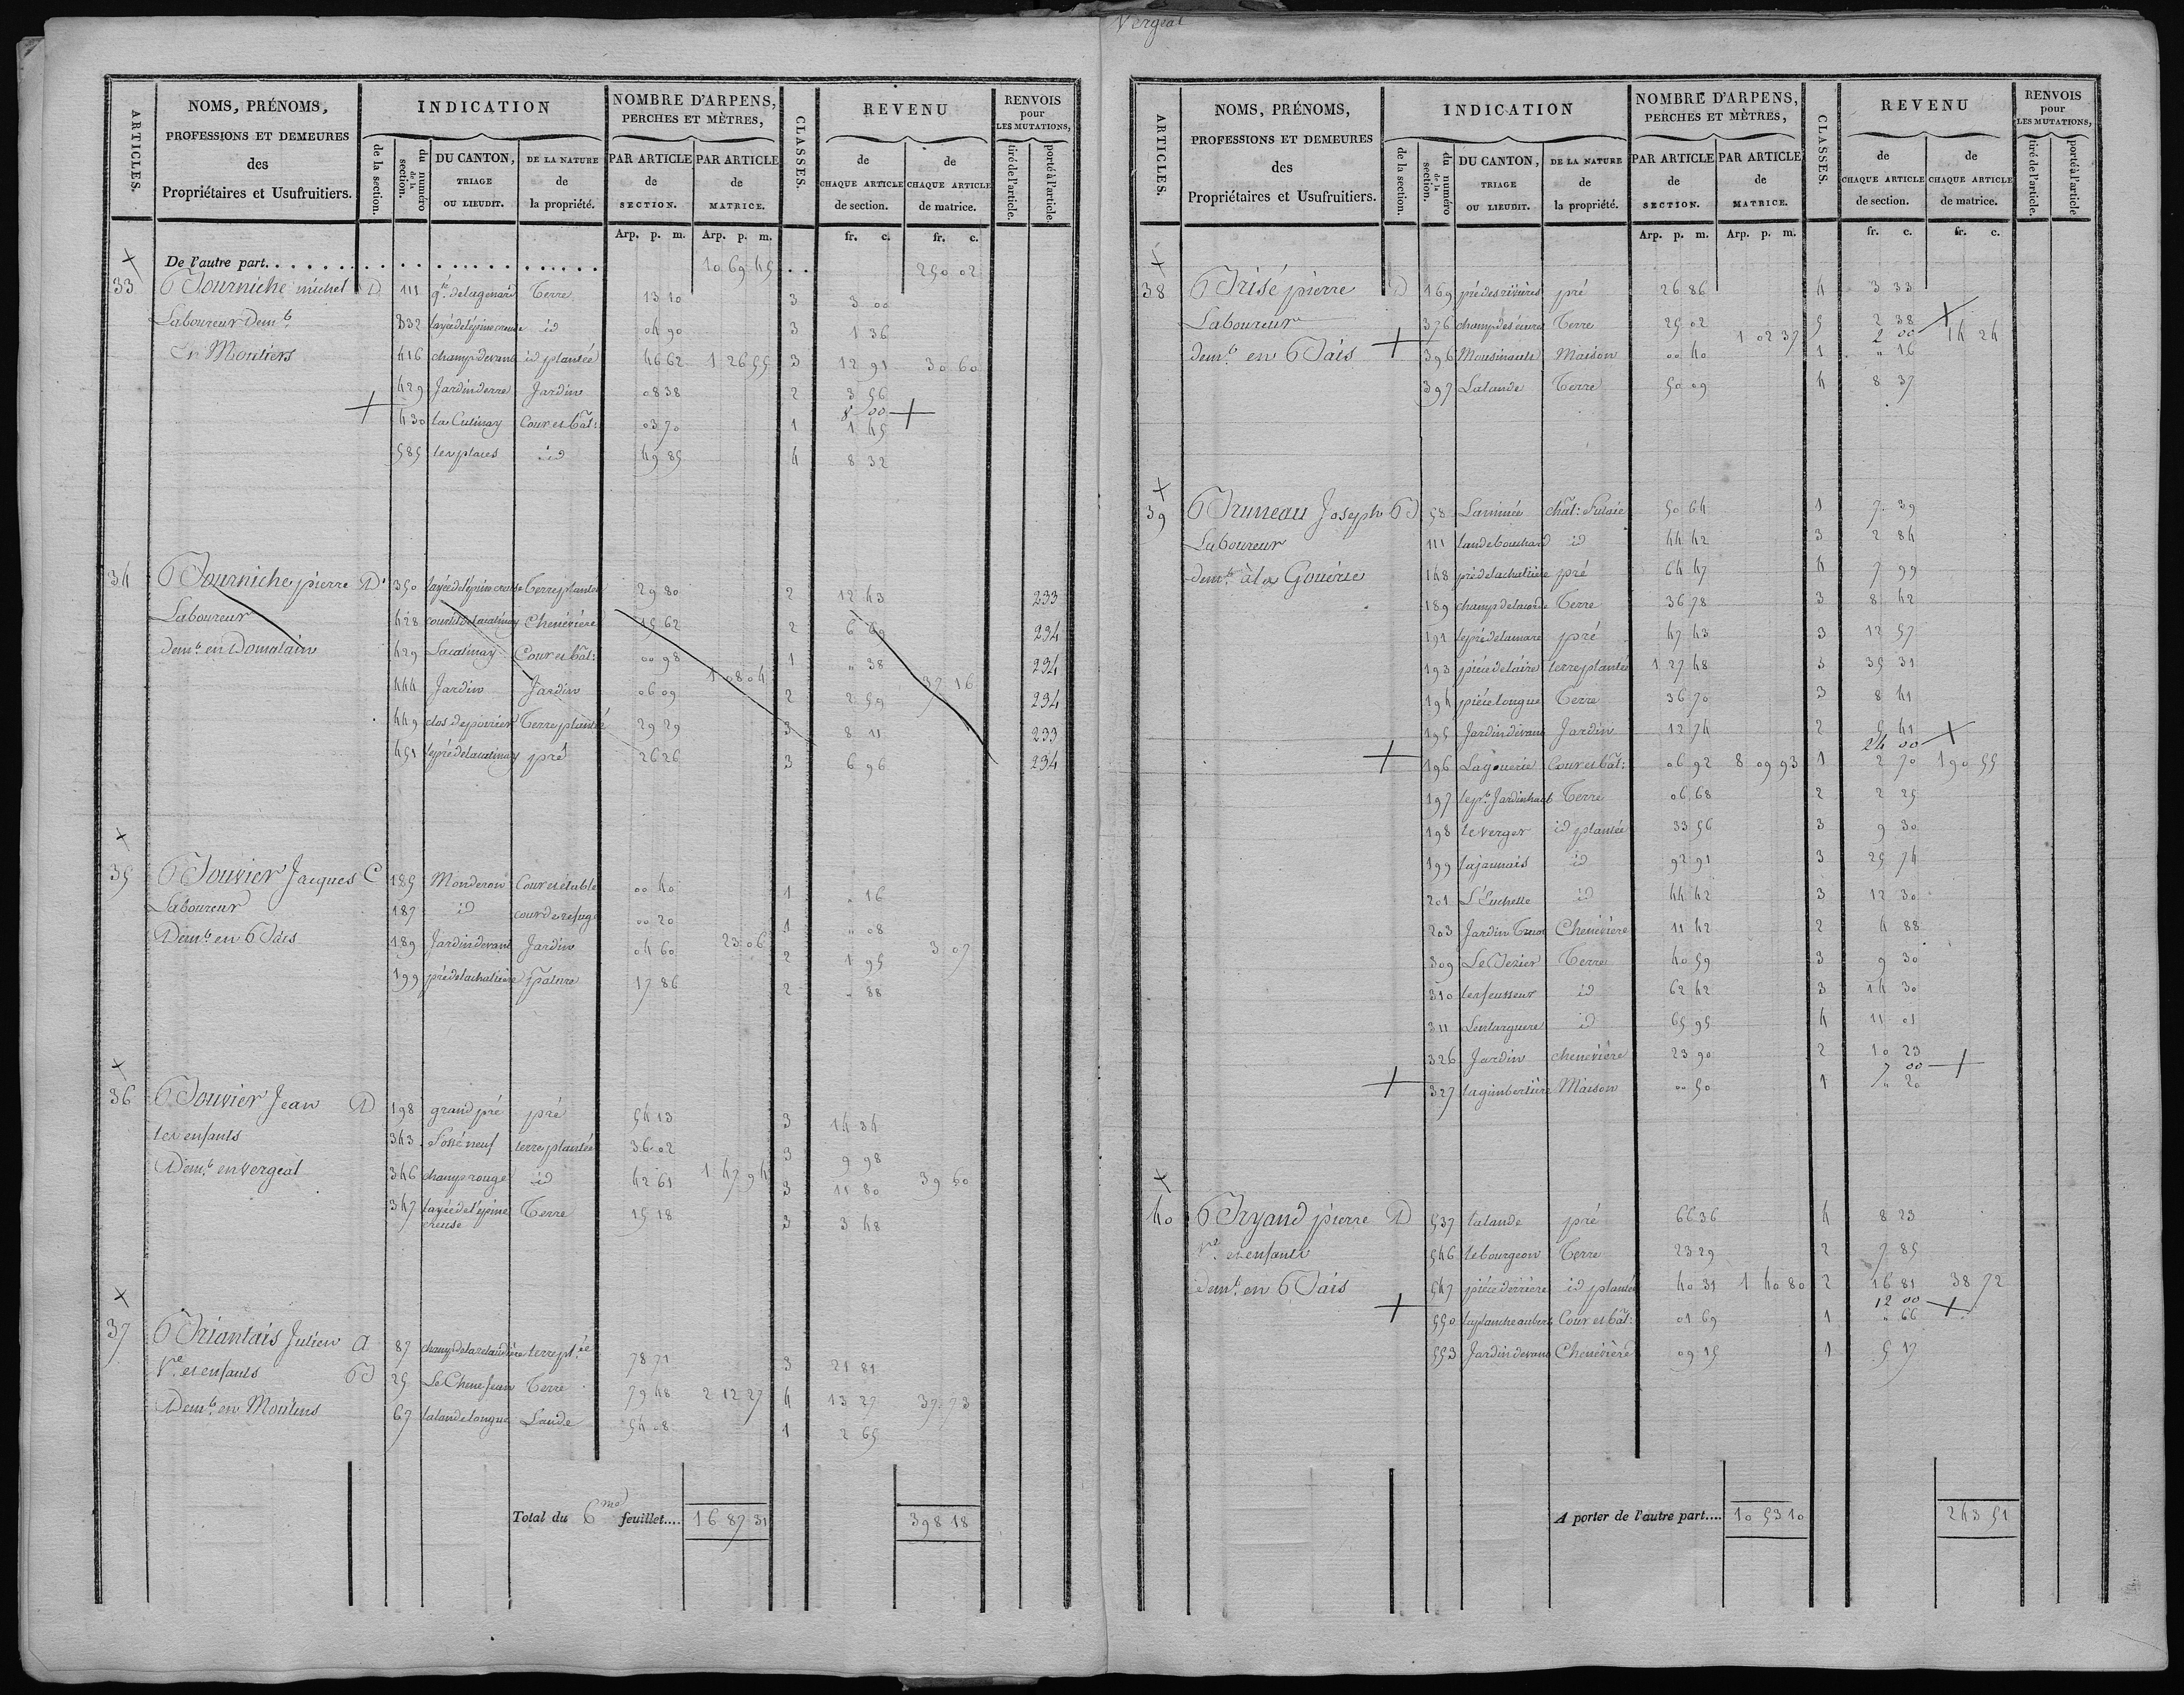 Vergeal
ARTICLES.
NOMS, PRÉNOMS,
PROFESSIONS ET DEMEURES
des
Propriétaires et Usufruitiers.
INDICATION
de la section.
du numéro de la section.
DU CANTON, TRIAGE OU LIEUDIT.
DE LA NATURE de la propriété.
NOMBRE D'ARPENS, PERCHES ET MÈTRES,
PAR ARTICLE de SECTION.
PAR ARTICLE de MATRICE.
CLASSES.
REVENU
de CHAQUE ARTICLE de section.
de CHAQUE ARTICLE de matrice.
RENVOIS pour LES MUTATIONS,
tiré de l'article.
porté à l'article.
Arp. p. m. Arp. p. m. fr. c. fr. c.
De l'autre part. 10 69 45 250 02
33 michel D 111 Terre 13 10 3 3 00
Laboureur Demt 332 layée de l'épine creuse id 04 90 3 1 36
En Moutiers 416 champ devant id plantée 46 62 1 26 55 3 12 91 30 60
429 Jardin Jardin 08 38 2 3 56
8 00
430 Cour et bât: 03 70 1 1 45
585 les places id 49 85 4 8 32
34 pierre D 350 layée de l'épine creuse Terre plantée 29 80 2 12 43 233
Laboureur 428 Chenévière 15 62 2 6 69 234
Demt en Domalain 429 Cour et bât: 00 98 1 08 04 1 " 38 37 16 234
444 Jardin Jardin 06 09 2 2 59 234
449 clos de poirier Terre plantée 29 29 3 8 11 233
451 pré 26 26 3 6 96 234
35 Jacques C 185 Monderon Cour et étable 00 40 1 " 16
Laboureur 187 id cour de refuge 00 20 1 " 08
Demt en Bais 189 Jardin devant Jardin 04 60 23 06 2 1 95 3 07
199 pré de la chalière pature 17 86 2 " 88
36 Jean D 198 grand pré pré 54 13 3 14 34
les enfants 343 Fossé neuf terre plantée 36 02 3 9 98
Demt en vergeal 346 champ rouge id 42 61 1 47 94 3 11 80 39 60
347 layée de l'épine creuse Terre 15 18 3 3 48
37 Julien A 87 terre ptée 78 71 3 21 81
Ve et enfants B 25 Terre 79 48 2 12 27 4 13 27 37 73
Demt en Moutiers 67 la lande longue Lande 54 08 1 2 65
Total du 6me feuillet.... 16 87 31 398 18
ARTICLES.
NOMS, PRÉNOMS,
PROFESSIONS ET DEMEURES
des
Propriétaires et Usufruitiers.
INDICATION
de la section.
du numéro de la section.
DU CANTON, TRIAGE OU LIEUDIT.
DE LA NATURE de la propriété.
NOMBRE D'ARPENS, PERCHES ET MÈTRES,
PAR ARTICLE de SECTION.
PAR ARTICLE de MATRICE.
CLASSES.
REVENU
de CHAQUE ARTICLE de section.
de CHAQUE ARTICLE de matrice.
RENVOIS pour LES MUTATIONS,
tiré de l'article.
porté à l'article
Arp. p. m. Arp. p. m. fr. c. fr. c.
38 Brisé pierre D 169 pré des rivières pré 26 86 4 3 33
Laboureur 376 Terre 25 02 5 2 38
2 00
demt en Bais 396 Maison 00 40 1 02 37 1 " 16 14 24
397 Lalande Terre 50 09 4 8 37
39 Bruneau Joseph B 58 chât: Futaie 50 64 1 7 39
Laboureur 111 lande bouchard id 44 42 3 2 84
demt à la Gouérie 148 pré de la chalière pré 64 47 4 7 99
189 Terre 36 78 3 8 42
191 le pré de la mare pré 47 43 3 12 57
193 pièce de l'aire terre plantée 1 27 48 3 35 31
194 pièce longue Terre 36 70 3 8 41
195 Jardin devant Jardin 12 74 2 5 41
24 00
196 La gouerie Cour et bât: 06 92 8 09 93 1 2 70 190 55
197 le pt Jardin haut Terre 06 68 2 2 25
198 le verger id plantée 33 56 3 9 30
199 la jaunais id 92 91 3 25 74
201 id 44 42 3 12 30
203 Jardin Chenévière 11 42 2 4 88
309 Terre 40 59 3 9 30
310 id 62 42 3 14 30
311 id 65 95 4 11 01
326 Jardin chenevière 23 90 2 10 23
7 00
327 Maison 00 50 1 " 20
40 pierre D 537 lalande pré 66 36 4 8 23
Ve et enfants 546 le bourgeon Terre 23 29 2 7 85
demt en Bais 547 pièce derrière id plantée 40 31 1 40 80 2 16 81 38 72
12 00
550 la planche aubert Cour et bât: 01 69 1 " 66
553 Jardin devant Chenévière 09 15 1 5 17
A porter de l'autre part.... 10 53 10 243 51